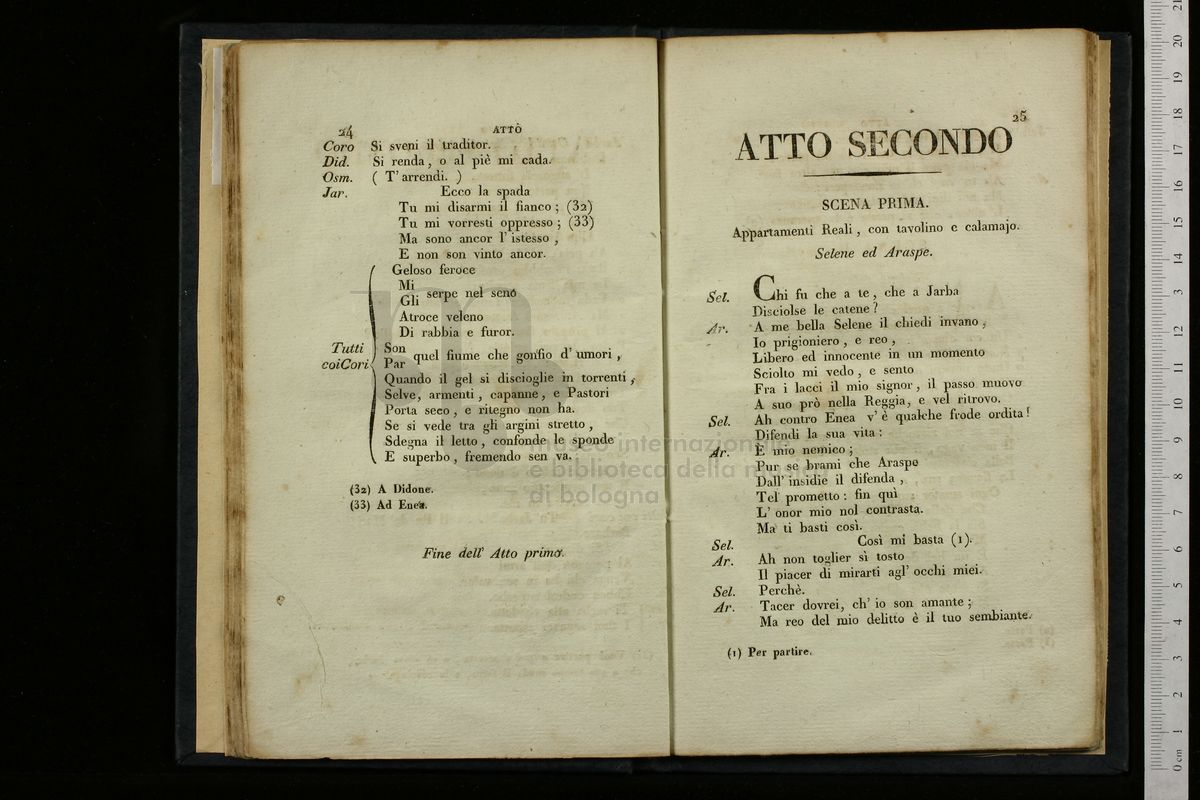 24
ATTO
Coro Si sveni il traditor.
Did. Si renda, o al piè mi cada.
Osm. ( T' arrendi. )
Jar. Ecco la spada
Tu mi disarmi il fianco ; (32)
Tu mi vorresti oppresso ; (33)
Ma sono ancor l' istesso ,
E non son vinto ancor.
Geloso feroce
Mi
Gli serpe nel seno
Atroce veleno
Di rabbia e furor.
Tutti coi Cori
Son
Par quel fiume che gonfio d' umori ,
Quando il gel si discioglie in torrenti ,
Selve, armenti , capanne, e Pastori
Porta seco , e ritegno non ha.
Se si vede tra gli argini stretto ,
Sdegna il letto , confonde le sponde
E superbo , fremendo sen va.
(32) A Didone.
(33) Ad Enea.
Fine dell' Atto primo.
25
ATTO SECONDO
SCENA PRIMA.
Appartamenti Reali , con tavolino e calamajo.
Selene ed Araspe.
Sel. Chi fu che a te , che a Jarba
Disciolse le catene ?
Ar. A me bella Selene il chiedi invano ,
Io prigioniero , e reo ,
Libero ed innocente in un momento
Sciolto mi vedo , e sento
Fra i lacci il mio signor , il passo muovo
A suo prò nella Reggia, e vel ritrovo.
Sel. Ah contro Enea v' è qualche frode ordita !
Difendi la sua vita :
Ar. È mio nemico ;
Pur se brami che Araspe
Dall' insidie il difenda ,
Tel prometto : fin quì
L' onor mio nol contrasta.
Ma ti basti così.
Sel. Così mi basta (1).
Ar. Ah non toglier sì tosto
Il piacer di mirarti agl' occhi miei.
Sel. Perchè.
Ar. Tacer dovrei, ch' io son amante ;
Ma reo del mio delitto è il tuo sembiante.
(1) Per partire.
museo internazionale
e biblioteca della musica
di bologna
0 cm 1 2 3 4 5 6 7 8 9 10 11 12 13 14 15 16 17 18 19 20 21